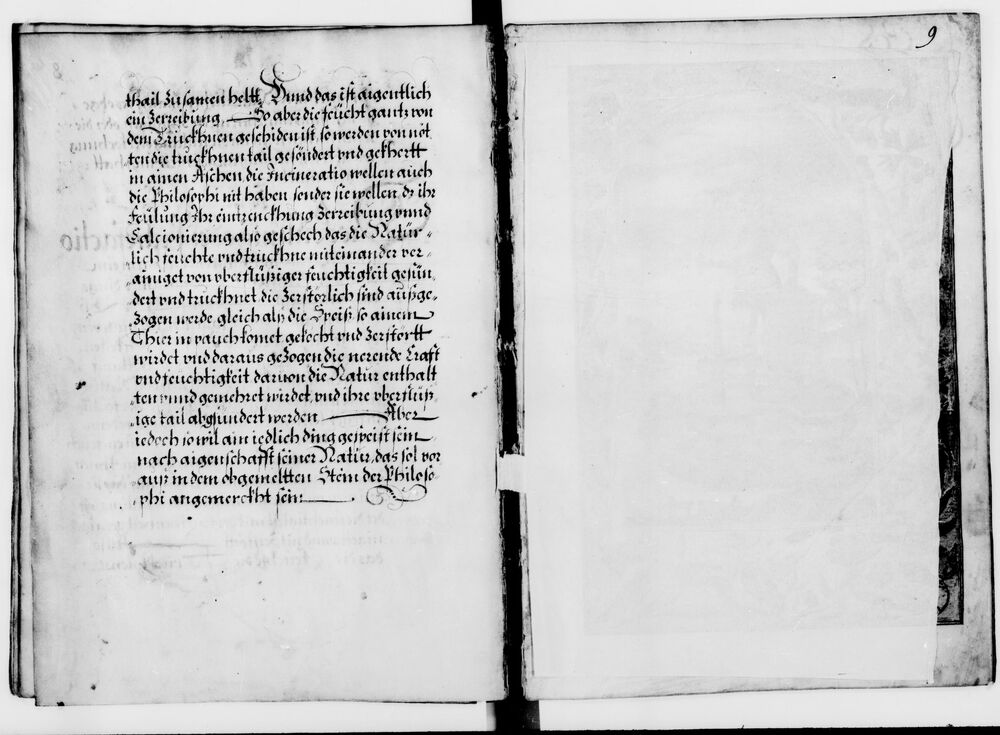 thail zusamen heltt, Vnnd das ist aigentlich
ein Zerreibung, So aber die feücht gantz von
dem Trückhnen geschiden ist, so werden von nöt
ten die truckhnen tail gesöndert vnd gekhertt
in ainen Aschen die Incineratio wellen auch
die Philosophi nit haben sonder sie wellen dz ihr
Feülung Ihr eintrenckhung Zerreibung vnnd
Calcionierung also geschech das die Natür-
lich feuchte vnd truckhne miteinander ver-
ainiget von vberflüßiger feuchtigkeit gesün-
dert vnd truckhnet die Zerstörlich sind außge-
Zogen werde gleich als die Speiß so ainem
Thier in pauch komet gekocht vnd Zerstörtt
wirdet vnd daraus geZogen die nerende Crafft
vnd feuchtigkeit daruon die Natur enthalt
ten vnnd gemehret wirdet, vnd ihre vberflüß-
ige tail abgsundert werden Aber
iedoch so wil am iedlich ding gespeist sein
nach aigenschafft seiner Natur, das sol vor
auß in dem obgemeltten Stein der Philoso-
phi angemerckht sein.
9